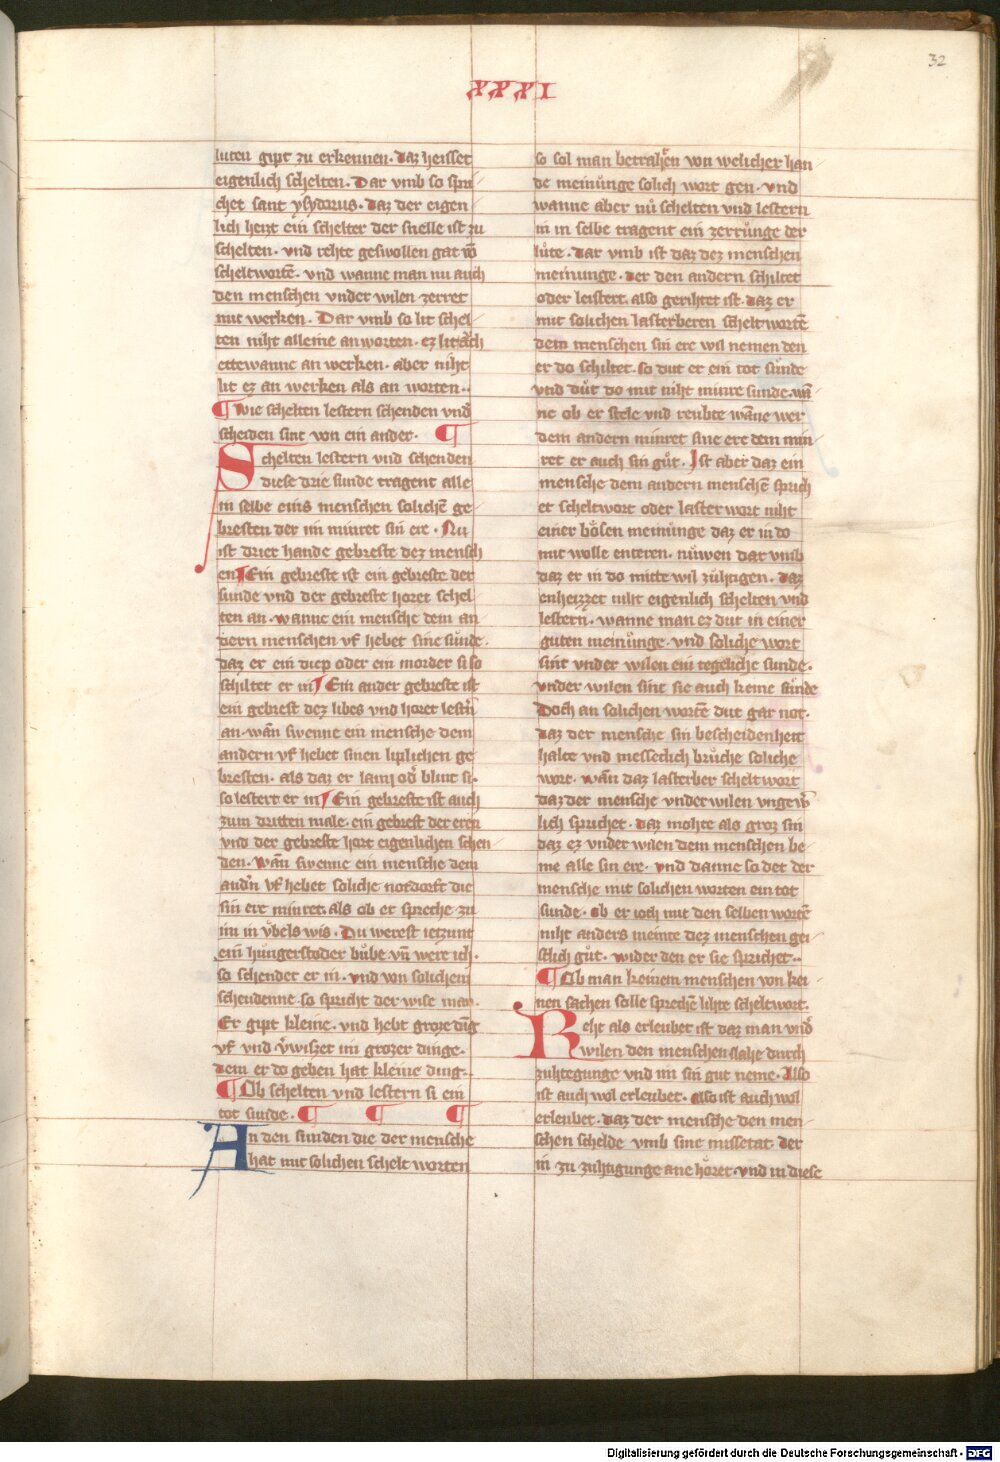 32
XXXI
luten gipt zu erkennen. Daz heisset
eigenlich schelten. Dar vmb so spri
chet sant ysydorus. Daz der eigen
lich heizt ein schelter der snelle ist zu
schelten. vnd rehte geswollen gat vō
scheltwortē. vnd wanne man nu auch
den menschen vnder wilen zerret
mit werken. Dar vmb so lit schel
ten niht alleine an worten. ez lit auch
ettewanne an werken. aber niht
lit ez an werken als an worten..
¶ Wie schelten lestern schenden vnd
scheiden sint von ein ander. ¶
Schelten lestern vnd schenden
diese drie sunde tragent alle
in selbe eins menschen solichē ge
bresten der im minret sin ere. Nu
ist drier hande gebreste dez mensch
en ¶ Ein gebreste ist ein gebreste der
sunde vnd der gebreste horet schel
ten an. wanne ein mensche dem an
dern menschen vf hebet sine sunde.
daz er ein diep oder ein morder si so
schiltet er in ¶ Ein ander gebreste ist
ein gebrest dez libes vnd horet lestn̄
an. wan̄ swenne ein mensche dem
andern vf hebet sinen liplichen ge
bresten. als daz er lam od blint si.
so lestert er in ¶ Ein gebreste ist auch
zum dritten male. ein gebrest der eren
vnd der gebreste hort eigenlichen schen
den. Wan̄ swenne ein mensche dem
andn̄ vf hebet soliche notdorft die
sin ere minret. als ob er spreche zu
im in vͤbels wis. Du werest ietzunt
ein hungerstoder bube vn̄ were ich.
so schendet er in. vnd von solichem
schendenne so spricht der wise man.
Er gipt kleine. vnd hebt groze ding
vf vnd vʾwiszet im grozer dinge.
dem er do geben hat kleine ding.
¶ Ob schelten vnd lestern si ein
tot sunde. ¶ ¶ ¶
An den sunden die der mensche
hat mit solichen schelt worten
so sol man betrahten von welicher han
de meinunge solich wort gen. vnd
wanne aber nu schelten vnd lestern
in in selbe tragent ein zerrunge der
lute. Dar vmb ist daz dez menschen
meinunge. der den andern schiltet
oder leistert. also gerihtet ist. daz er
mit solichen lasterberen scheltwortē
dem menschen sin ere wil nemen den
er do schiltet. so dut er ein tot sunde
vnd dut do mit niht minre sunde. wā
ne ob er stele vnd reubte wāne wer
dem andern minret sine ere dem min
ret er auch sin gut. Ist aber daz ein
mensche dem andern menschē sprich
et scheltwort oder laster wort niht
einer bosen meinunge daz er in do
mit wolle enteren. nuwen dar vmb
daz er in do mitte wil zuhtigen. daz
enheizzet niht eigenlich schelten vnd
lestern. wanne man ez dut in einer
guten meinunge. vnd soliche wort
sint vnder wilen ein tegeliche sunde.
vnder wilen sint sie auch keine sunde
Doch an solichen wortē dut gar not.
daz der mensche sin bescheidenheit
halte vnd messeclich bruche soliche
wort. wan̄ daz lasterber scheltwort
daz der mensche vnder wilen vngew
lich sprichet. daz mohte als groz sin
daz ez vnder wilen dem menschen be
me alle sin ere. vnd danne so det der
mensche mit solichen worten ein tot
sunde. ob er ioch mit den selben wortē
niht anders meinte dez menschen gei
stlich gut. wider den er sie sprichet..
¶ Ob man keinem menschen von kei
nen sachen solle sprechē lihte scheltwort.
Reht als erleubet ist daz man vnd
wilen den menschen slahe durch
zuhtegunge vnd im sin gut neme. Also
ist auch wol erleubet. also ist auch wol
erleubet. daz der mensche den men
schen schelde vmb sine missetat. der
in zu zuhtigunge ane horet. vnd in diese
Digitalisierung gefördert durch die Deutsche Forschungsgemeinschaft - DFG